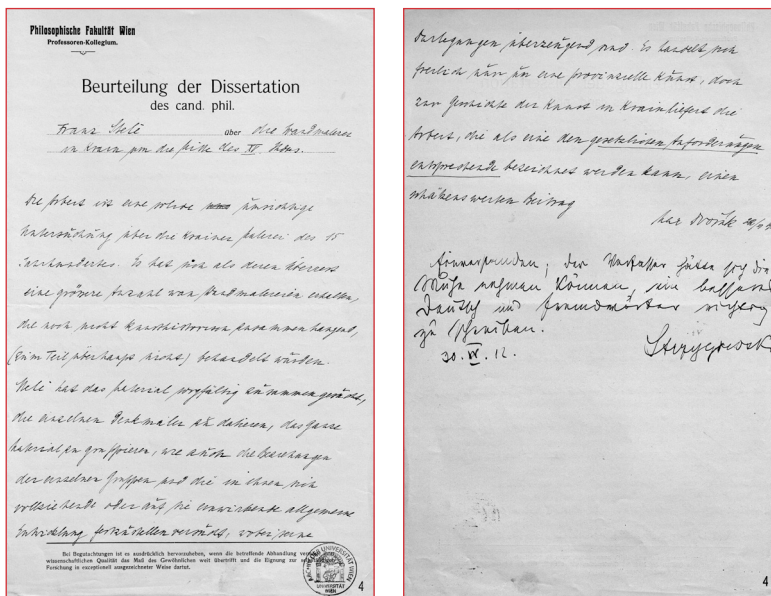 Philosophische Fakultät Wien
Professoren-Kollegium.
Beurteilung der Dissertation
des cand. phil.
Franz Stelè über die Wandmalerei
in Krain um die Mitte des XV. Jhdts.
Die Arbeit ist eine solide umsichtige
Untersuchung über die Krainer Malerei des 15
Jahrhundertes. Es hat sich als deren Überrest
eine grössere Anzahl von Wandmalereien erhalten,
die noch nicht kunsthistorisch zusammenhängend,
(zum Teil überhaupt nicht) behandelt wurden.
Stelè hat das Material sorgfältig zusammengesucht,
die einzelnen Denkmäler zu datieren, das ganze
Material zu gruppieren, wie auch die Beziehungen
der einzelnen Gruppen und die in ihnen sich
vollziehende oder auf sie einwirkende allgemeine
Entwicklung festzustellen versucht, wobei seine
Bei Begutachtungen ist es ausdrücklich hervorzuheben, wenn die betreffende Abhandlung
wissenschaftlichen Qualität das Maß des Gewöhnlichen weit übertrifft und die Eignung zur
Forschung in exceptionell ausgezeichneter Weise dartut.
UNIVERSITÄT
WIEN
4
Darlegungen überzeugend sind. Es handelt sich
freilich nur um eine provinzielle Kunst, doch
zur Geschichte der Kunst in Krain liefert die
Arbeit, die als eine den gesetzlichen Anforderungen
entsprechende bezeichnet werden kann, einen
schätzenswerten Beitrag
Max Dvořák
Einverstanden; der Verfasser hätte sich die
Mühe nehmen können, ein besseres
Deutsch und Fremdwörter richtig
zu schreiben.
30. IV. 12.
Strzygowski
4